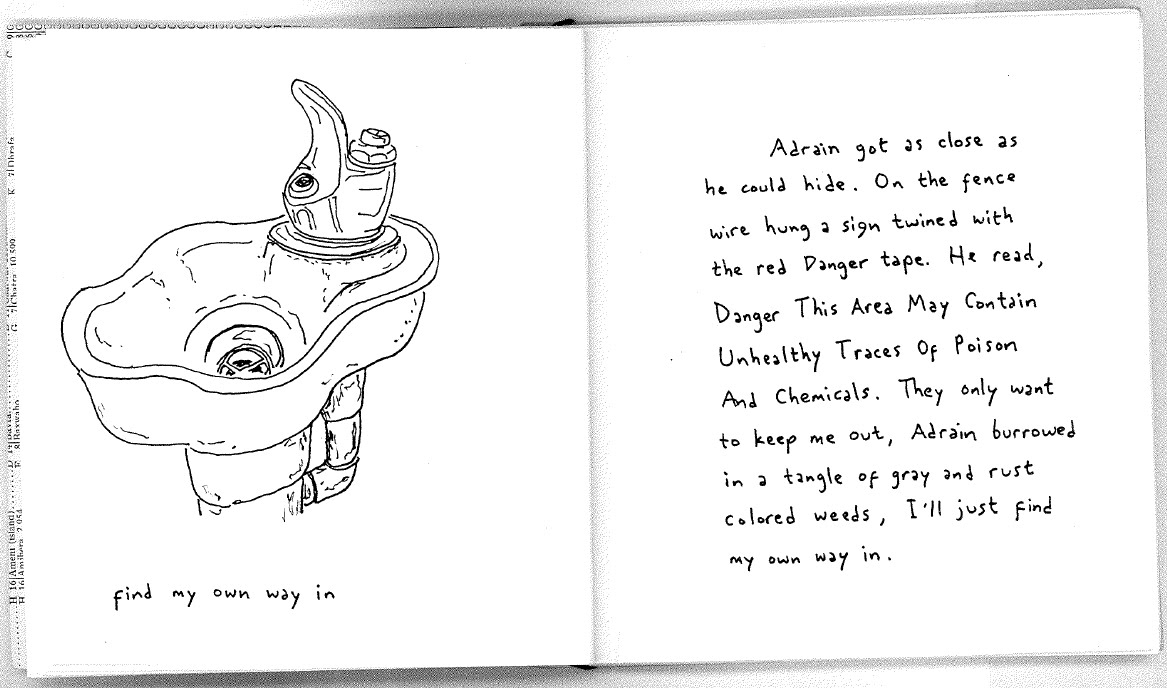 find my own way in
Adrain got as close as
he could hide. On the fence
wire hung a sign twined with
the red Danger tape. He read,
Danger This Area May Contain
Unhealthy Traces Of Poison
And Chemicals. They only want
to keep me out, Adrain burrowed
in a tangle of gray and rust
colored weeds, I'll just find
my own way in.